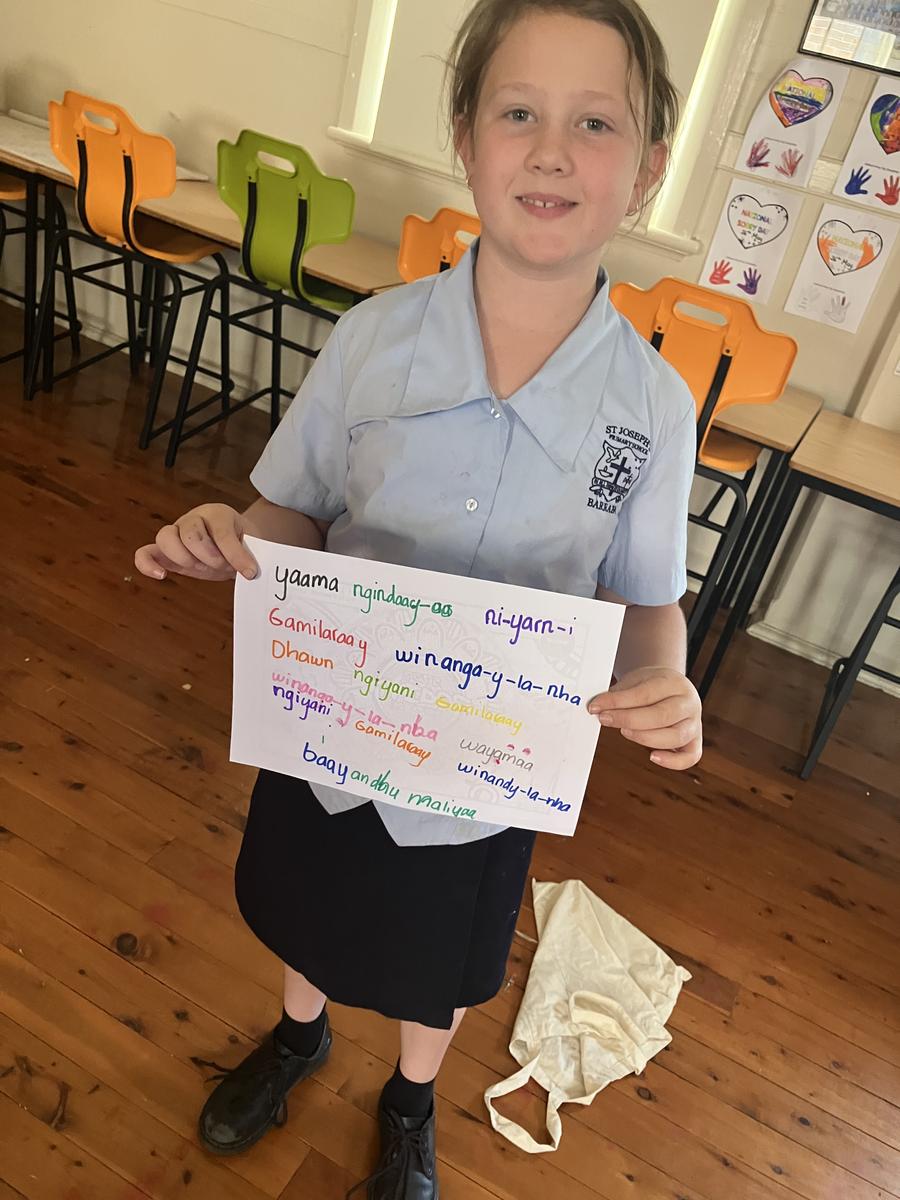 yaama ngindaay-aa ni-yarn-i
Gamilaraay winanga-y-la-nha
Dhawn ngiyani Gamilaraay
winanga-y-la-nha
ngiyani Gamilaraay wayamaa
baayandhu maliyaa winandy-la-nha
ST JOSEPH'S
PRIMARY SCHOOL
BARRABA
NATIONAL
SORRY DAY
26th May
NATIONAL